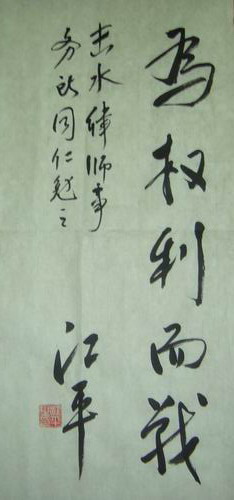 為权利而战
击水律师事
务所同仁勉之
江平